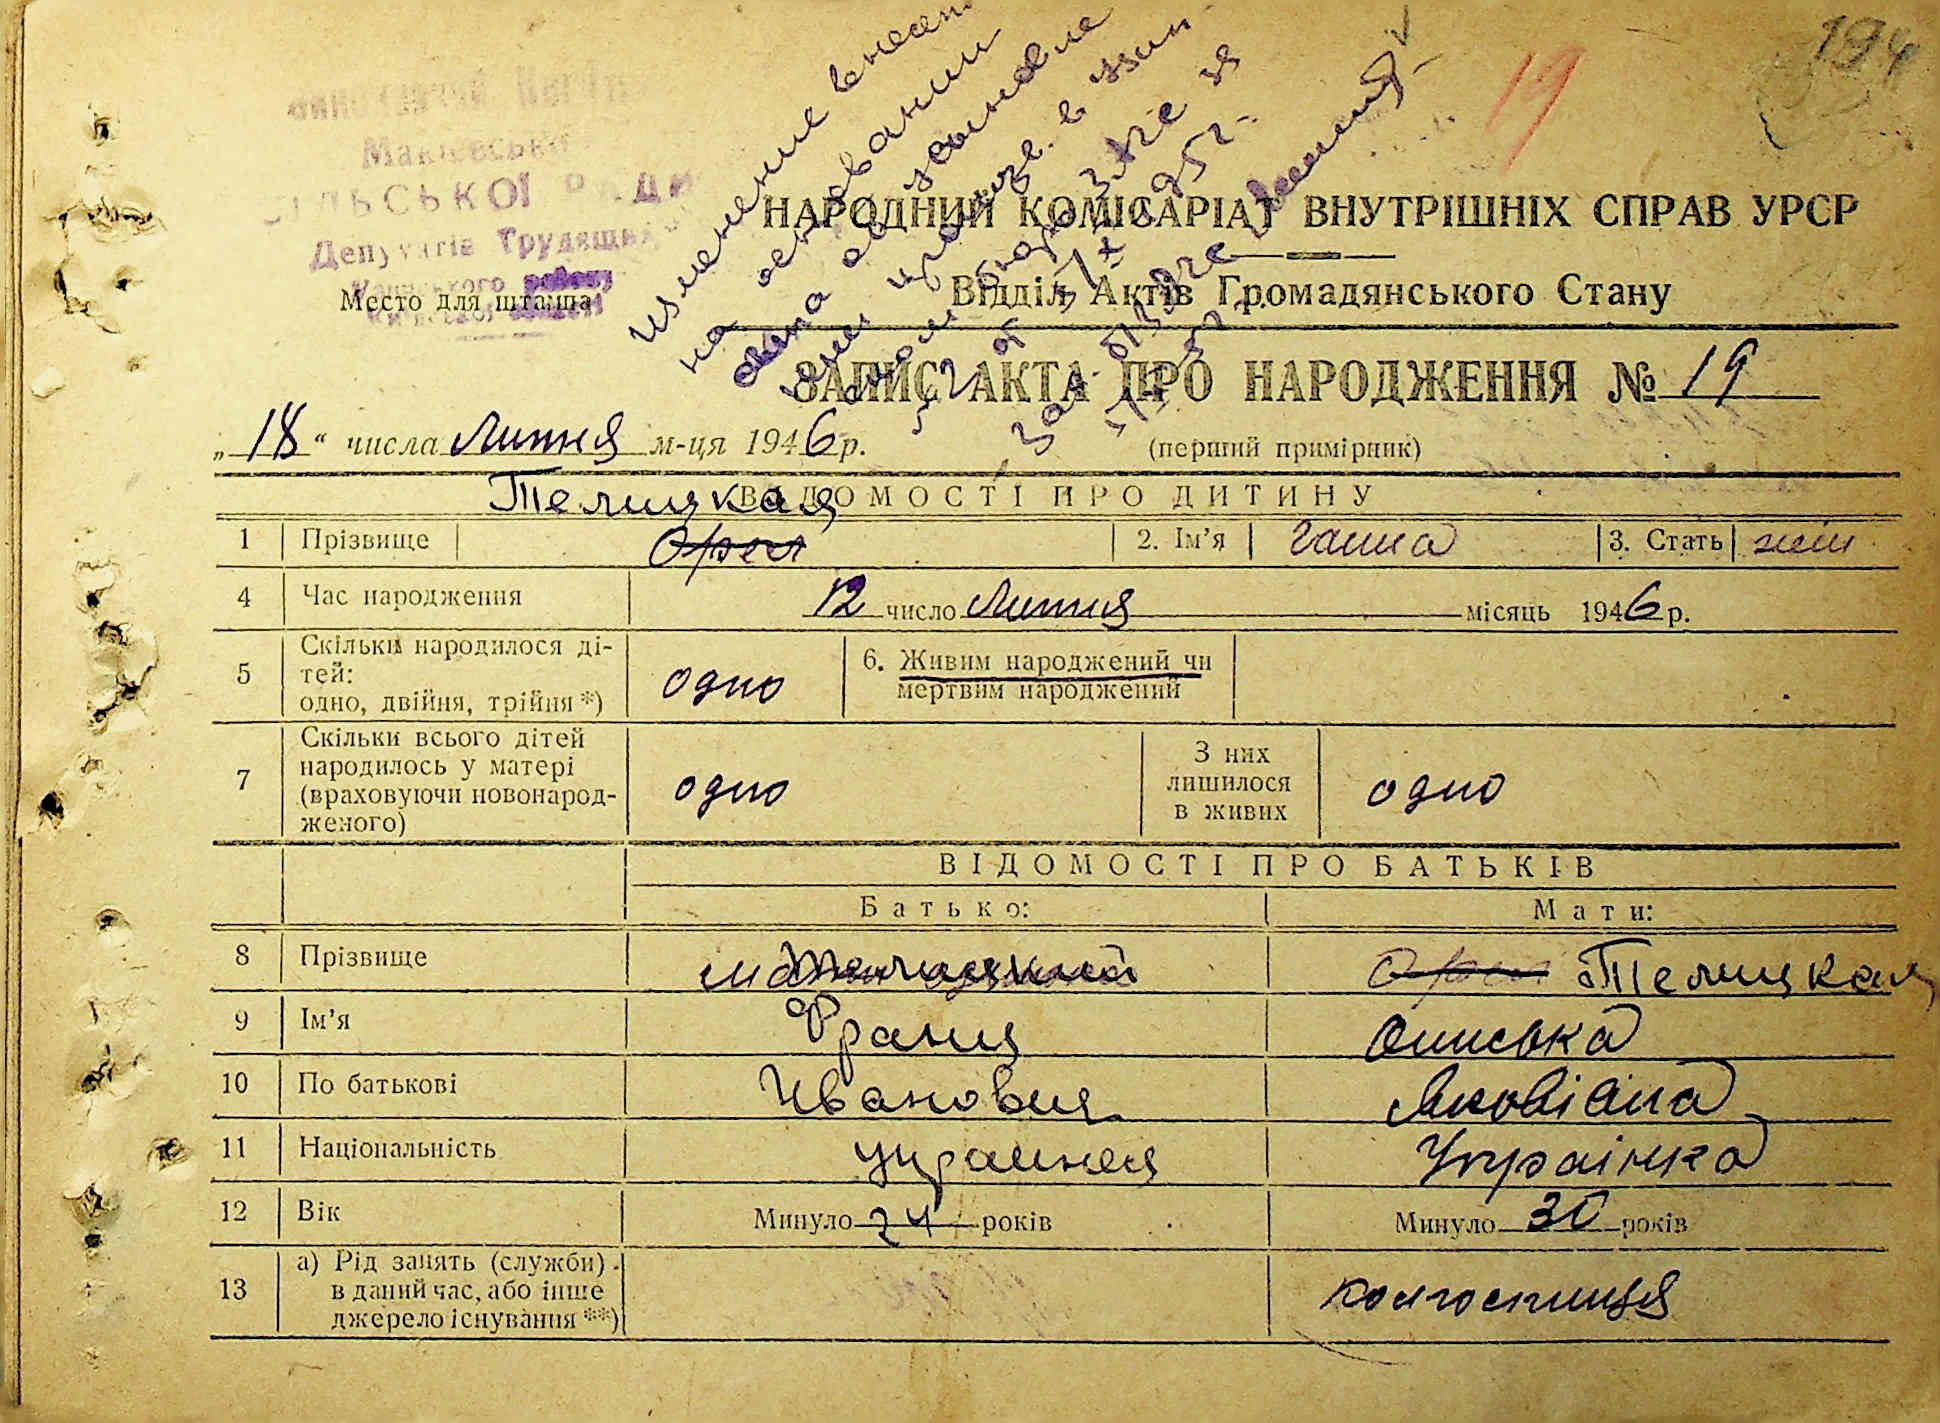 194
19
Виконавчий Комітет
Маківської
СІЛЬСЬКОЇ РАДИ
Депутатів Трудящих
району
Место для штампа
Изменение внесено
на основании
НАРОДНИЙ КОМІСАРІАТ ВНУТРІШНІХ СПРАВ УРСР
Відділ Актів Громадянського Стану
ЗАПИС АКТА ПРО НАРОДЖЕННЯ № 19
„18“ числа Липня м-ця 1946 р. (перший примірник)
ВІДОМОСТІ ПРО ДИТИНУ
Телицкая
1 Прізвище Орел 2. Ім’я Ганна 3. Стать жін
4 Час народження 12 число Липня місяць 1946 р.
5 Скільки народилося ді-
тей:
одно, двійня, трійня *) одно 6. Живим народжений чи
мертвим народжений
7 Скільки всього дітей
народилось у матері
(враховуючи новонарод-
женого) одно З них
лишилося
в живих одно
ВІДОМОСТІ ПРО БАТЬКІВ
Батько: Мати:
8 Прізвище Телицкий Орел Телицкая
9 Ім’я Франц Ониська
10 По батькові Иванович Яковівна
11 Національність украинец Українка
12 Вік Минуло 24 років Минуло 30 років
13 а) Рід занять (служби)
в даний час, або інше
джерело існування **) колгоспниця